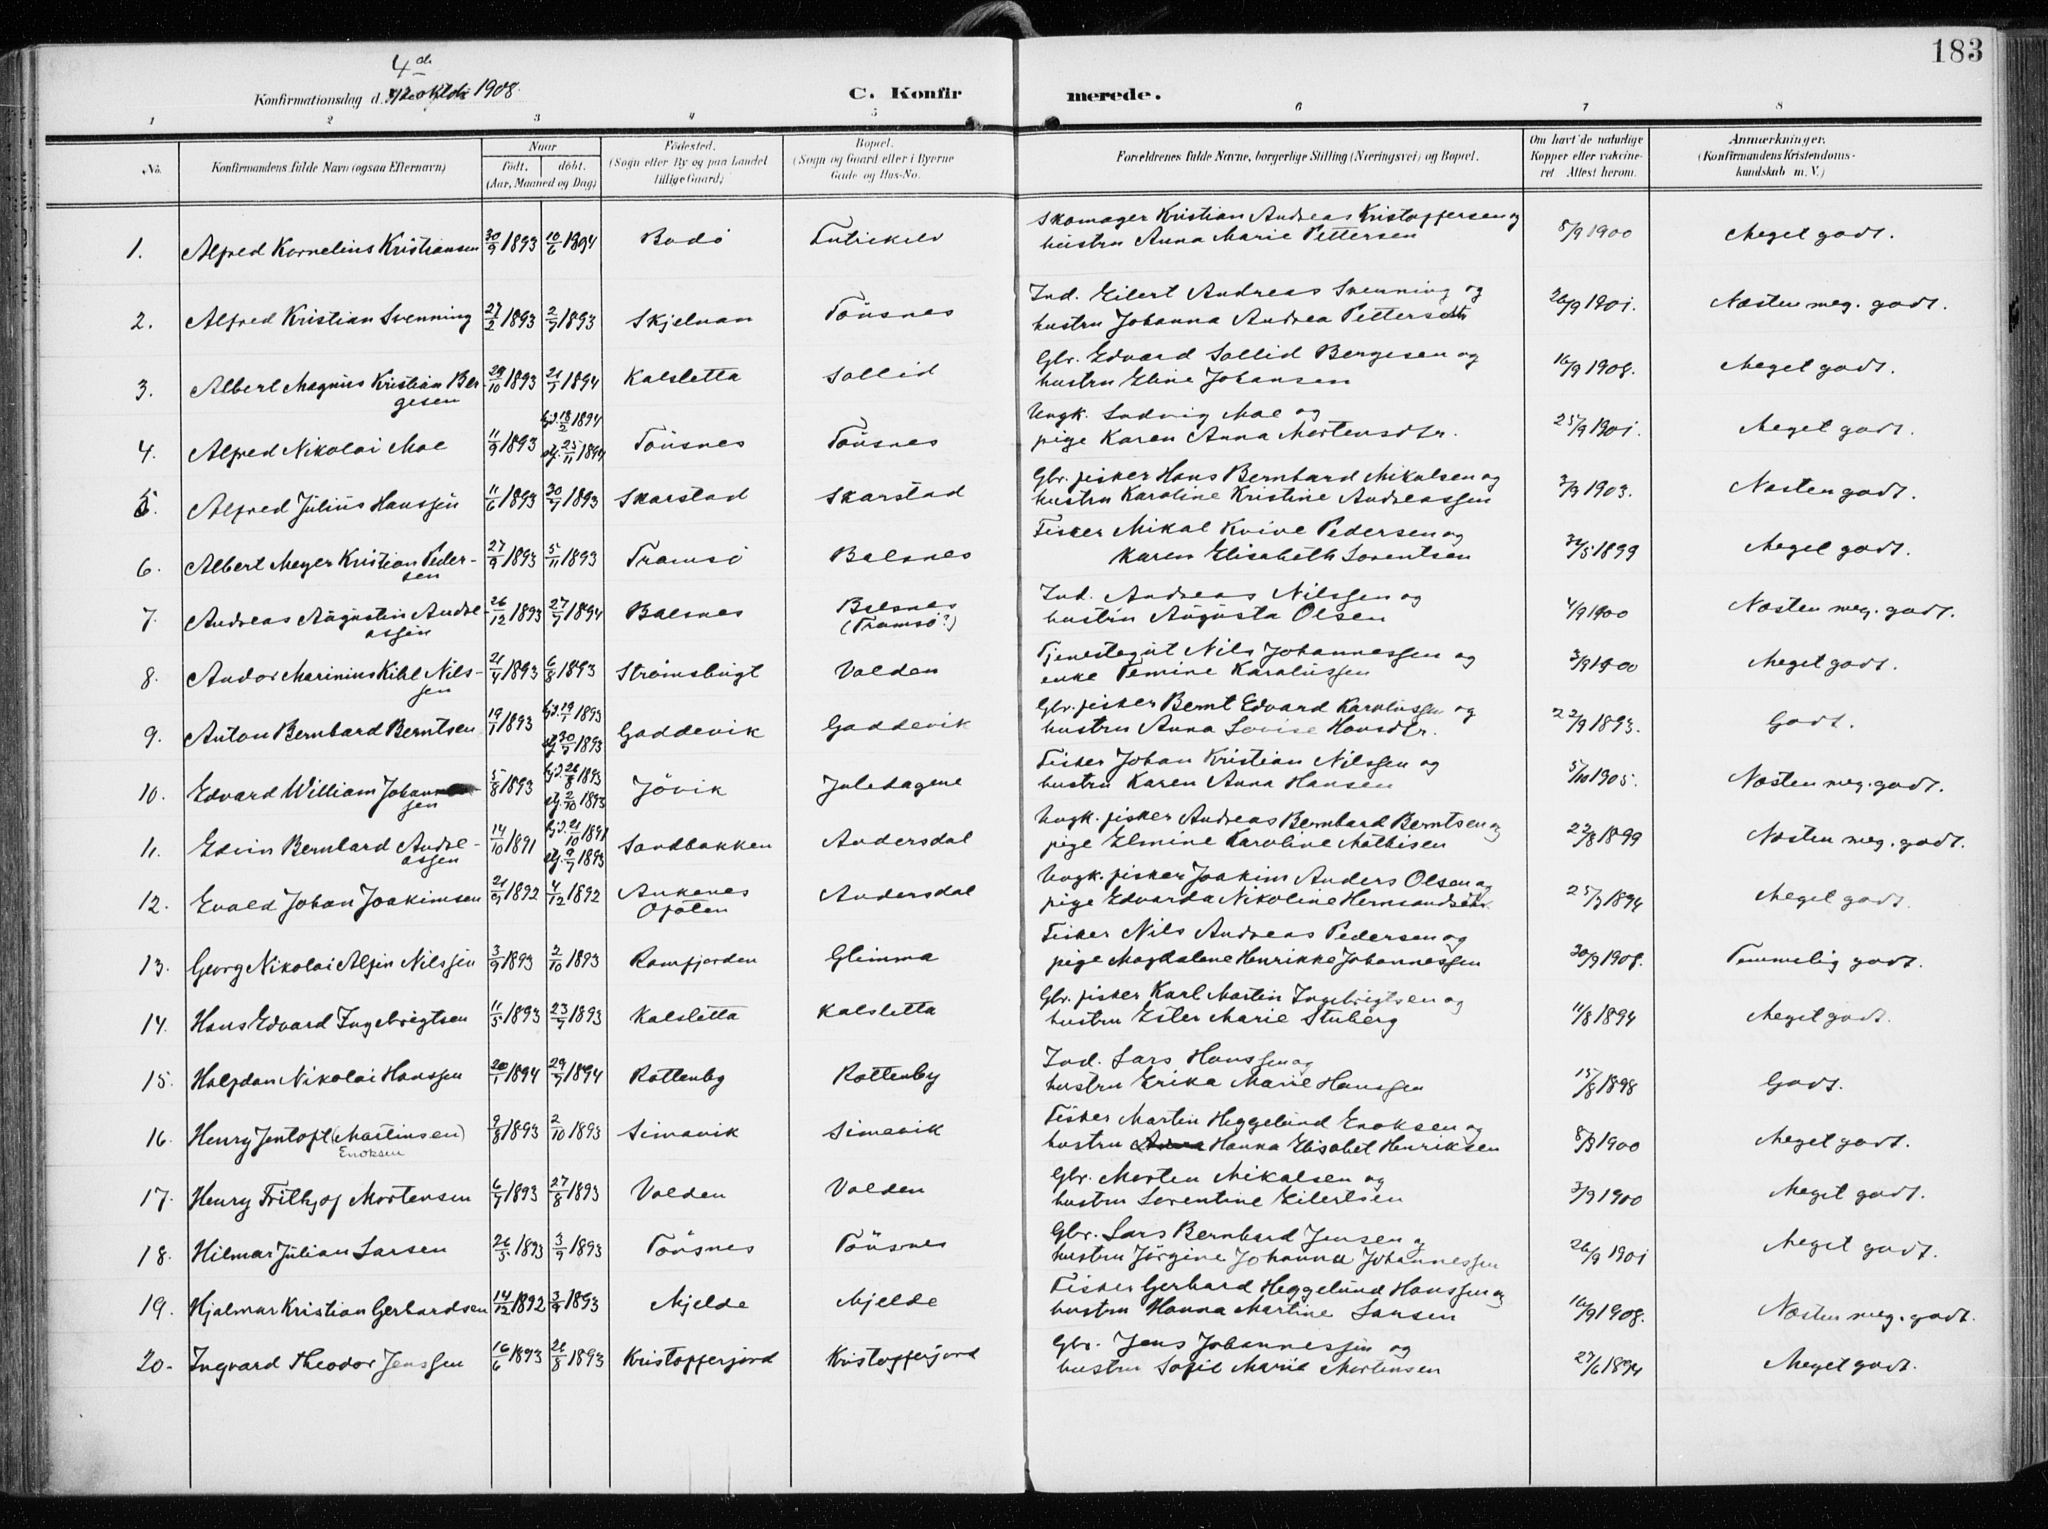 183
4de
Konfirmationsdag d. oktbr 1908.
C. Konfirmerede.
1 2 3 4 5 6 7 8
No. Konfirmandens fulde Navn (ogsaa Efternavn) Naar født, døbt. (Aar, Maaned og Dag) Fødested. (Sogn eller By og paa Landet tillige Gaard) Bopæl. (Sogn og Gaard eller i Byerne Gade og Hus-No. Forældrenes fulde Navne, borgerlige Stilling (Næringsvei) og Bopæl. Om havt de naturlige Kopper eller vakcineret Attest herom. Anmærkninger. (Konfirmandens Kristendomskundskab m. V.)
1. Alfred Kornelius Kristiansen 30/9 1893 10/6 1894 Bodø Skomager Kristian Andreas Kristoffersen og hustru Anna Marie Pettersen 8/9 1900 Meget godt.
2. Alfred Kristian Svenning 27/2 1893 2/7 1893 Skjelnan Tønsnes Ind. Eilert Andreas Svenning og hustru Johanna Andrea Pettersdtr 26/9 1901. Næsten meg. godt.
3. Albert Magnus Kristian Bergesen 29/10 1893 21/7 1894 Kalsletta Sollid Gbr. Edvard Sollid Bergesen og hustru Eline Johansen 16/9 1908. Meget godt.
4. Alfred Nikolai Moe 11/9 1893 hjd. 18/2 1894 stf. 25/11 1894 Tønsnes Tønsnes Ungk. Ludvig Moe og pige Karen Anna Mortensdtr. 25/9 1901. Meget godt.
5. Alfred Julius Hanssen 11/6 1893 30/7 1893 Skarstad Skarstad Gbr. fisker Hans Bernhard Mikalsen og hustru Karoline Kristine Andreassen 3/9 1903. Næsten godt.
6. Albert Meyer Kristian Pedersen 27/9 1893 5/11 1893 Tromsø Balsnes Fisker Mikal Kvive Pedersen og Karen Elisabeth Lorentsen 1899 Meget godt.
7. Andreas Augustin Andreassen 26/12 1893 27/7 1894 Balsnes Balsnes (Tromsø?) Ind. Andreas Nilssen og hustru Augusta Olsen 4/9 1900 Næsten meg. godt.
8. Andor Marinius Kihl Nilssen 21/4 1893 6/8 1893 Strømsbugt Volden Tjenestegut Nils Johannessen og enke Karolussen 3/9 1900 Meget godt.
9. Anton Bernhard Berntsen 19/7 1893 hjd. 19/7 1893 stf. 30/7 1893 Gaddevik Gaddevik Gbr. fisker Bernt Edvard Karolussen og hustru Anna Lovise Hansdtr. 22/9 1893. Godt.
10. Edvard William Johannessen 5/8 1893 hjd. 26/8 1893 stf. 2/10 1893 Jøvik Juledagene Fisker Johan Kristian Nilssen og hustru Karen Anna Hansen 5/10 1905. Næsten meg. godt.
11. Edvin Bernhard Andreassen 14/10 1891 hjd. 21/10 1891 stf. 9/7 1893 Sandbakken Andersdal Ungk. fisker Andreas Bernhard Berntsen og pige Elmine Karoline Mathisen 22/8 1899 Næsten meg. godt.
12. Evald Johan Joakimsen 21/9 1892 4/12 1892 Ankenes Ofoten Andersdal Ungk. fisker Joakim Anders Olsen og pige Edvarda Nikoline Hermandsdtr. 1894 Meget godt.
13. Georg Nikolai Alfin Nilssen 3/9 1893 2/10 1893 Ramfjorden Glimma Fisker Nils Andreas Pedersen og pige Magdalene Henrikke Johannessen 30/9 1908. Temmelig godt.
14. Hans Edvard Ingebrigtsen 11/5 1893 23/7 1893 Kalsletta Kalsletta Gbr. fisker Karl Martin Ingebrigtsen og hustru Ester Marie Stuberg 11/8 1894 Meget godt.
15. Halfdan Nikolai Hanssen 20/1 1894 29/7 1894 Rottenby Rottenby Ind. Lars Hanssen og hustru Erika Marie Hanssen 15/8 1898 Godt.
16. Henry Jentoft (Martinsen) Enoksen 9/8 1893 2/10 1893 Simavik Simavik Fisker Martin Heggelund Enoksen og hustru Anna Hanna Elisabet Henriksen 8/9 1900 Meget godt.
17. Henry Frithjof Mortensen 6/7 1893 27/8 1893 Volden Volden Gbr. Morten Mikalsen og hustru Lorentine Eilertsen 3/9 1900 Meget godt.
18. Hilmar Julian Larsen 26/5 1893 3/9 1893 Tønsnes Tønsnes Gbr. Lars Bernhard Jensen og hustru Jørgine Johanna Johannessen 26/9 1901 Meget godt.
19. Hjalmar Kristian Gerhardsen 14/12 1892 3/9 1893 Mjelde Mjelde Fisker Gerhard Heggelund Hanssen og hustru Hanna Martine Larsen 16/9 1908. Næsten meg. godt.
20. Ingvard Theodor Jenssen 16/6 1893 26/8 1893 Kristofferjord Kristofferjord Gbr. Jens Johannessen og hustru Sofie Marie Mortensen 27/6 1894 Meget godt.